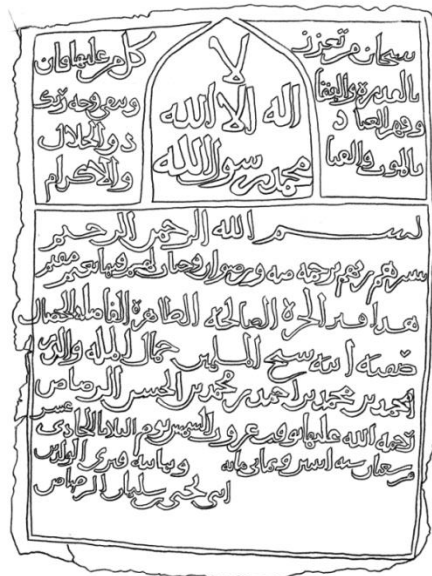 سبحان من تعزز
بالقدرة والبقا
وقهر العباد
بالموت والفنا
لا
اله الا الله
محمد رسول الله
كل من عليها فان
ويبقى وجه ربك
ذو الجلال
والاكرام
بسم الله الرحمن الرحيم
يبشرهم ربهم برحمة منه ورضوان وجنات لهم فيها نعيم مقيم
هذا قبر الحرة الصالحة الطاهرة الفاضلة الخصال
صفية ابنة شيخ المسلمين جمال الملة والدين
محمد بن محمد بن احمد بن محمد بن الحسن الرصاص
رحمة الله عليها توفيت غروب الشمس يوم الثلاثا الحادي عشر
من رمضان سنة اثنين وثماني مائة قبري الولدين
ابني يحيى بن سليمان الرصاص